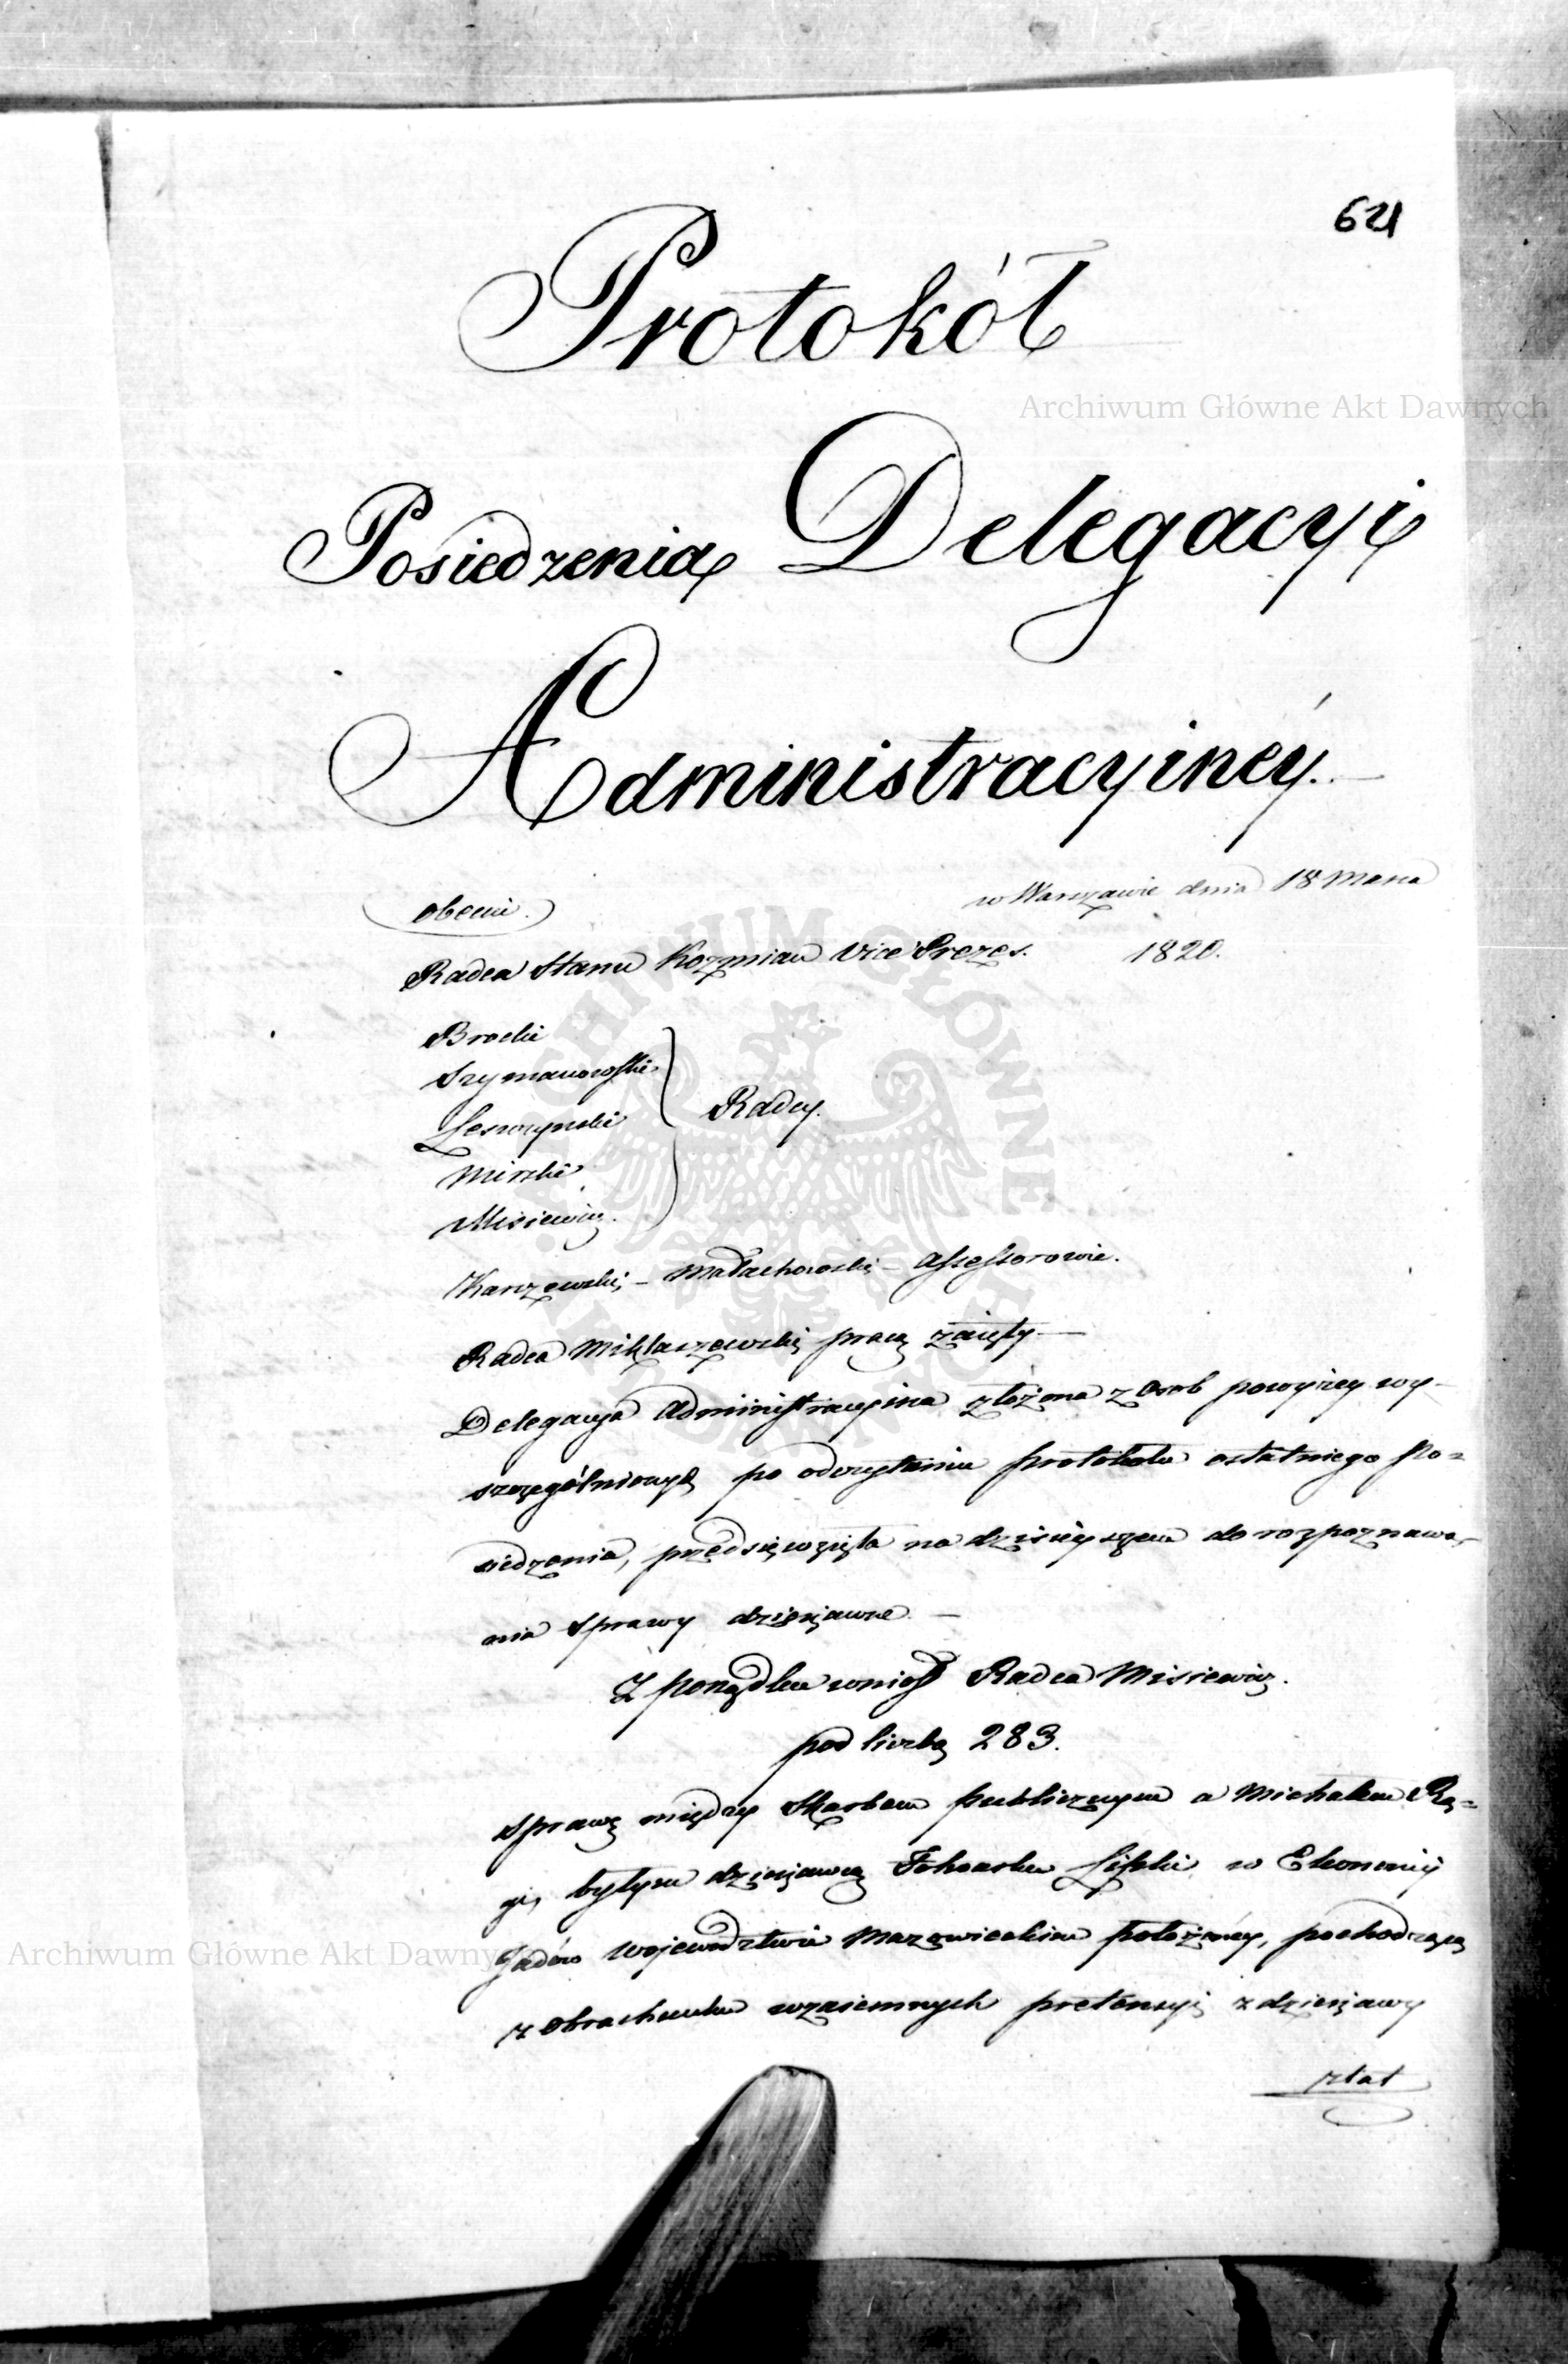 621
Protokół
Posiedzenia Delegacyi
Administracyiney.
obecni.
w Warszawie dnia 18 Marca
Radca Stanu Kozmian Vice Prezes. 1820.
Brocki
Szymanowski
Leszczynski
Mirski
Misiewicz.
Radcy.
Karczewski, – Małachowski – Assessorowie.
Radca Miklaszewski pracą zaięty –
Delegacya Administracyina złożona z Osob powyżey wy-
szczególnionych po odczytaniu protokołu ostatniego Po=
siedzenia, przedsięwzięła na dzisieyszem do rozpoznawa-
nia sprawy dzierżawne –
Z porządku wniosł Radca Misiewicz.
pod liczbą 283.
sprawę między Skarbem publicznym a Michałem
byłym dzierżawcą Folwarku w Ekonomii
Jadów Województwie Mazowieckim położoney, pochodzącą
z obrachunku wzaiemnych pretensyi z dzierżawy
z lat
Archiwum Główne Akt Dawnych
Archiwum Główne Akt Dawnych
ARCHIWUM GŁÓWNE AKT DAWNYCH